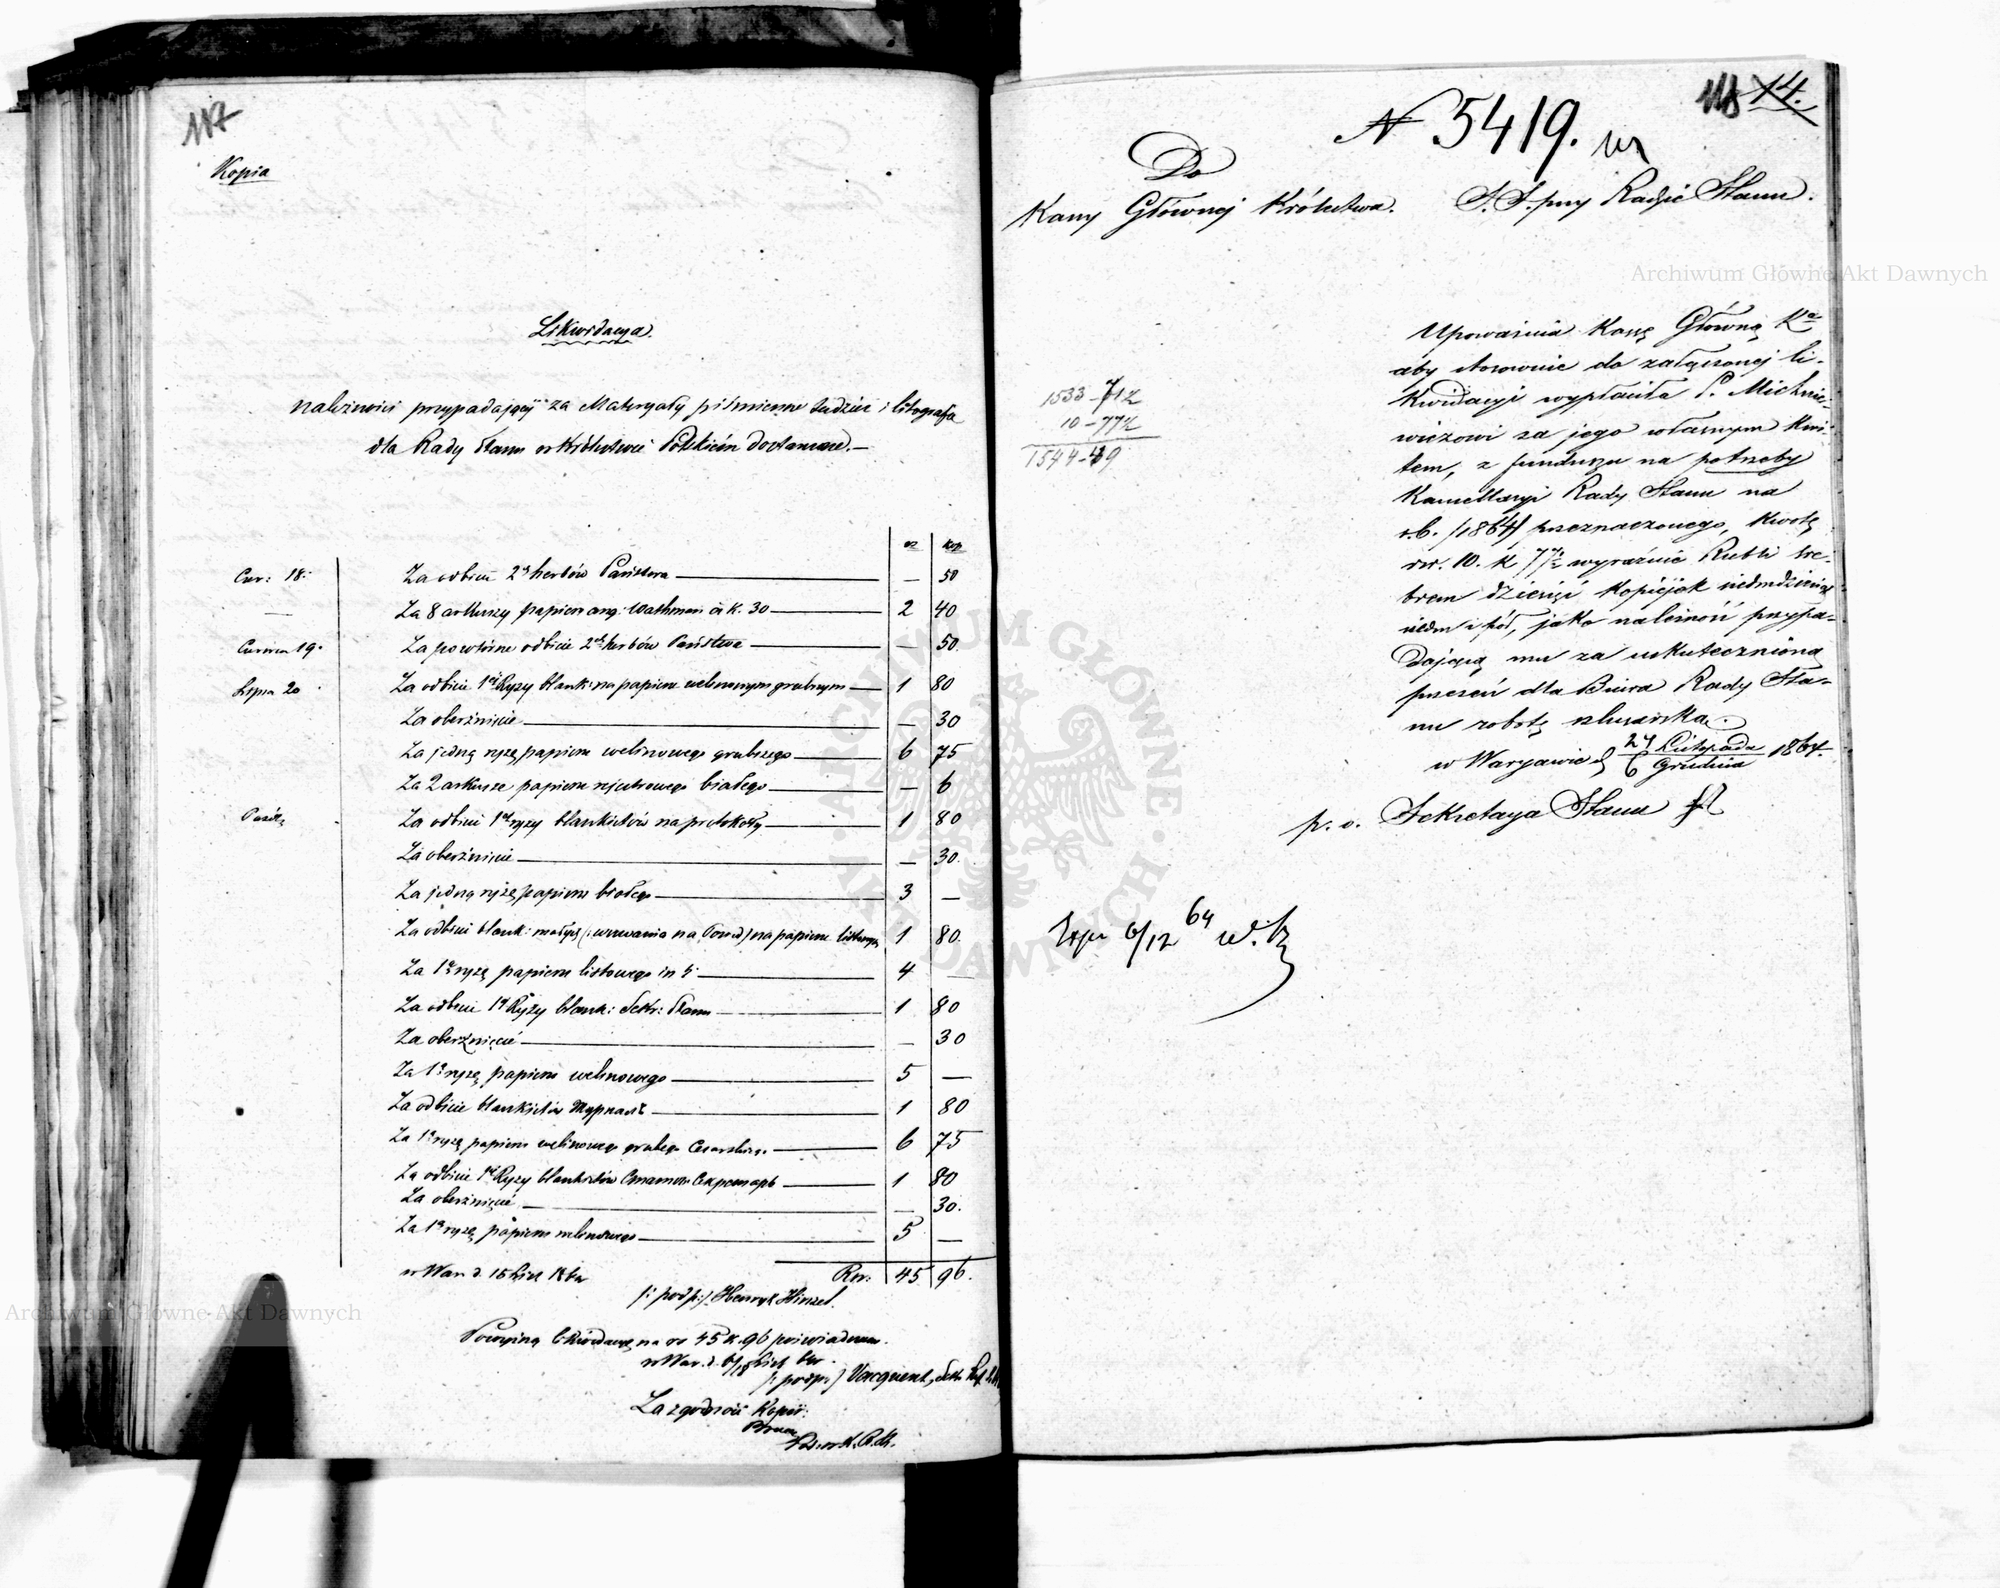 117
Kopia
Likwidacya.
należności przypadającej za Materyały piśmienne tudzież i litografią
dla Rady Stanu w Królestwie Polskiem dostarczone.—
rs kop
Czer: 18. Za odbicie 2ch herbów Państwa — 50
— Za 8 arkuszy papieru ang: Wathman à k. 30 2 40
Czerwca 19. Za powtórne odbicie 2ch herbów Państwa — 50.
Lipca 20 Za odbicie 1éj Ryzy blank: na papierze welinowym grubym 1 80
Za oberznięcie — 30
Za jedną ryzę papieru welinowego grubszego 6 75
Za 2 arkusze papieru białego — 6
Za odbicie 1éj ryzy blankietów na protokoły 1 80
Za oberznięcie — 30.
Za jedną ryzę papieru białego 3 —
Za odbicie blank: małych (: wezwania na :) na papierze listowym 1 80.
Za 1ą ryzę papieru listowego in 4 —
Za odbicie 1éj Ryzy blank: Sekr: Stanu 1 80
Za oberznięcie — 30
Za 1ą ryzę papieru welinowego 5 —
Za odbicie blankietów 1 80
Za 1ą ryzę papieru welinowego grubego 6 75
Za odbicie 1éj Ryzy blankietów Статсъ Секретарь 1 80
Za oberznięcie — 30.
Za 1ą ryzę papieru welinowego 5 —
w War d. 15 Rsr: 45 96.
/: podp:/ Henryk Hinzel.
Powyższą likwidacyę na rs 45 k. 96 poświadczam.
w War. d.
/: podpi:/ Vacqueret, Sekr
Za zgodność Kopii:
118 14.
N 5419.
Do
Kassy Głównej Królestwa. S. S. przy Radzie Stanu.
Upoważnia Kassę Główną Ka
aby stosownie do załączonej li-
kwidacyi wypłaciła P. Michnie-
wiczowi za jego własnym kwi-
tem, z funduszu na potrzeby
Kancellaryi Rady Stanu na
r.b. /1864/ przeznaczonego, kwotę
rsr. 10. k 77½ wyraźnie Rubli sre-
brem dziesięć kopiejek siedmdziesiąt
siedm i pół, jako należność przypa-
dającą mu za uskutecznioną
przezeń dla Biura Rady Sta-
nu robotę ślusarską.
w Warszawie d 24 Listopada / 6 Grudnia 1864.
p. o. Sekretarza Stanu
1533 - 712
10 - 77½
1544 - 49
Exp 6/12 64
Archiwum Główne Akt Dawnych
Archiwum Główne Akt Dawnych
ARCHIWUM GŁÓWNE · AKT DAWNYCH ·